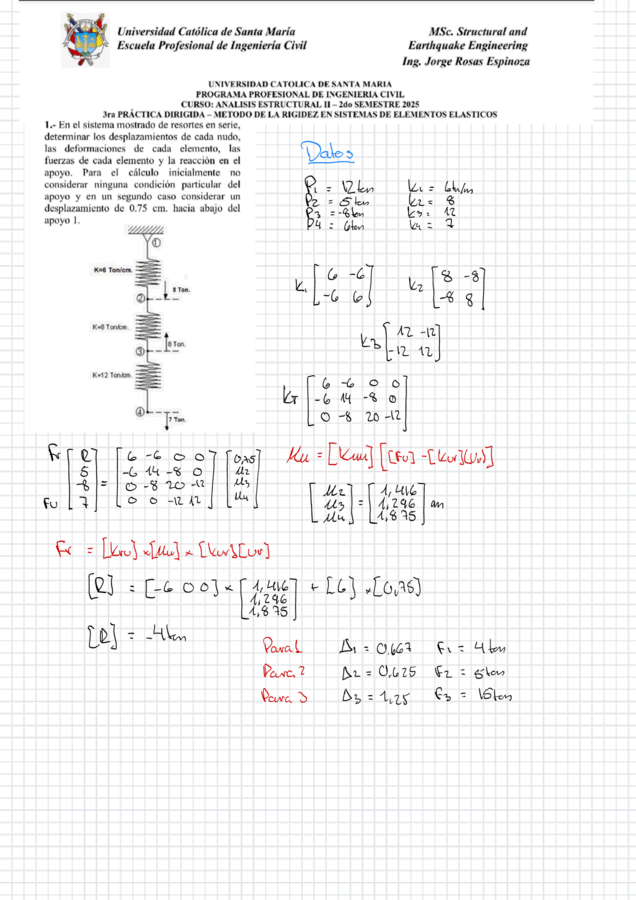 Universidad Católica de Santa María
Escuela Profesional de Ingeniería Civil
MSc. Structural and
Earthquake Engineering
Ing. Jorge Rosas Espinoza
UNIVERSIDAD CATOLICA DE SANTA MARIA
PROGRAMA PROFESIONAL DE INGENIERIA CIVIL
CURSO: ANALISIS ESTRUCTURAL II – 2do SEMESTRE 2025
3ra PRÁCTICA DIRIGIDA – METODO DE LA RIGIDEZ EN SISTEMAS DE ELEMENTOS ELASTICOS
1.- En el sistema mostrado de resortes en serie,
determinar los desplazamientos de cada nudo,
las deformaciones de cada elemento, las
fuerzas de cada elemento y la reacción en el
apoyo. Para el cálculo inicialmente no
considerar ninguna condición particular del
apoyo y en un segundo caso considerar un
desplazamiento de 0.75 cm. hacia abajo del
apoyo 1.
Datos
P1 = 12ton K1 = 6tn/m
P2 = 5ton K2 = 8
P3 = -8ton K3 = 12
P4 = 6ton K4 = 7
1
K=6 Ton/cm.
5 Ton.
2
K=8 Ton/cm.
8 Ton.
3
K=12 Ton/cm
4
7 Ton.
K1 [6 -6
-6 6]
K2 [8 -8
-8 8]
K3 [12 -12
-12 12]
KT [6 -6 0 0
-6 14 -8 0
0 -8 20 -12]
Fr [R] = [6 -6 0 0] [0,75]
[5] [-6 14 -8 0] [μ2]
[-8] [0 -8 20 -12] [μ3]
Fu [7] [0 0 -12 12] [μ4]
μu = [Kuu] [[Fu] - [Kur][Ur]]
[μ2] = [1,416]
[μ3] [1,296] cm
[μ4] [1,875]
Fr = [Kru] x [μu] x [Kur][Ur]
[R] = [-6 0 0] x [1,416
1,296
1,875] + [6] x [0,75]
[R] = -4ton
Para 1 Δ1 = 0,667 F1 = 4ton
Para 2 Δ2 = 0,625 F2 = 5ton
Para 3 Δ3 = 1,25 F3 = 15ton